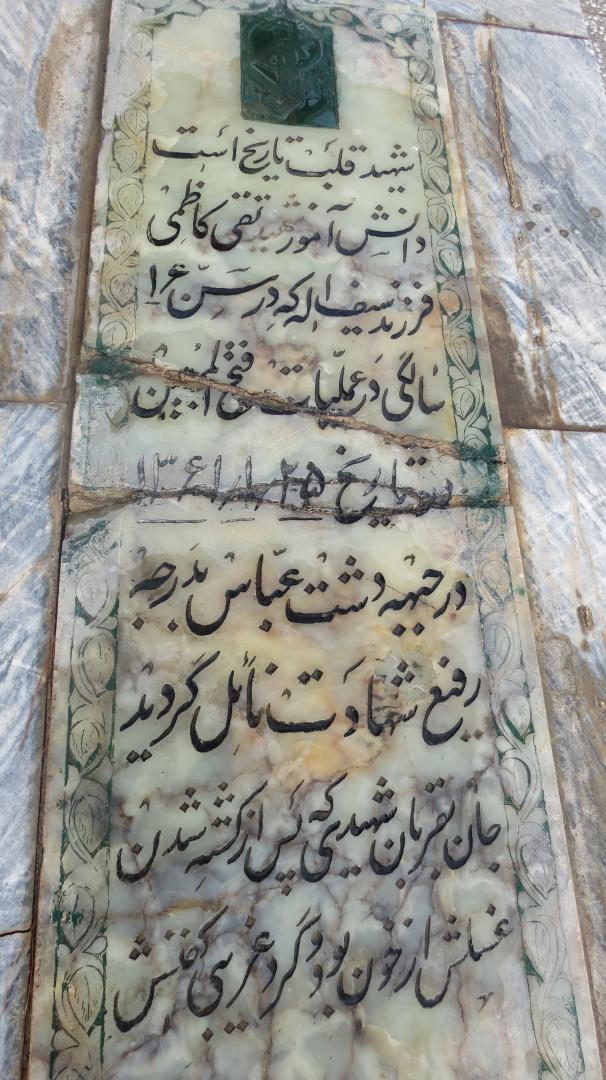 شهید قلب تاریخ است
دانش آموز شهید تقی کاظمی
فرزند سیف اله که در سنّ ۱۶
سالگی در عملیّات فتح المبین
در تاریخ ۱۳۶۱/۱/۲۵
در جبهه دشت عبّاس بدرجه
رفیع شهادت نائل گردید
جان بقربان شهیدی که پس از کشته شدن
غسلش از خون بود و گرد غریبی کفنش